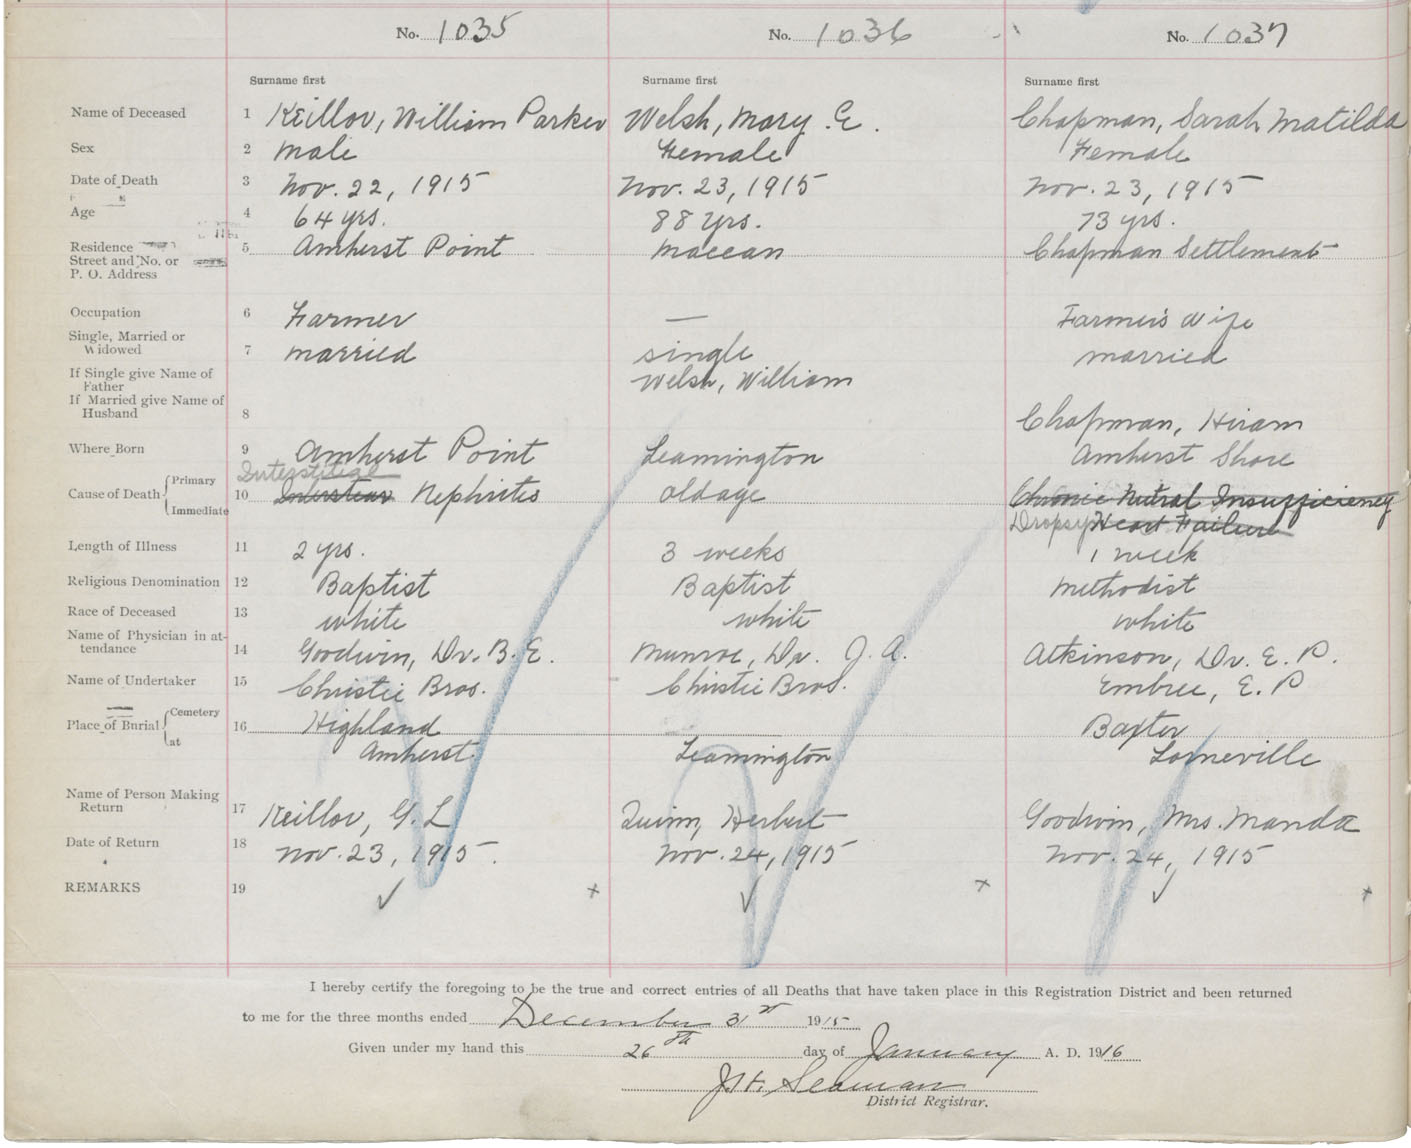 No. 1035 No. 1036 No. 1037
Surname first Surname first Surname first
Name of Deceased 1 Keillor, William Parker Welsh, Mary .E. Chapman, Sarah Matilda
Sex 2 Male Female Female
Date of Death 3 Nov. 22, 1915 Nov. 23, 1915 Nov. 23, 1915
Age 4 64 yrs. 88 yrs. 73 yrs.
Residence 5 Amherst Point Maccan Chapman Settlement
Street and No. or
P. O. Address
Occupation 6 Farmer — Farmer's Wife
Single, Married or
Widowed 7 married single married
If Single give Name of
Father Welsh, William
If Married give Name of
Husband 8 Chapman, Hiram
Where Born 9 Amherst Point Leamington Amherst Shore
Interstitial
Primary
Cause of Death 10 Nephritis old age Chronic Mitral Insufficiency
Immediate Dropsy Heart Failure
Length of Illness 11 2 yrs. 3 weeks 1 week
Religious Denomination 12 Baptist Baptist Methodist
Race of Deceased 13 white white white
Name of Physician in at-
tendance 14 Goodwin, Dr. B. E. Munroe, Dr. J. A. Atkinson, Dr. E. P.
Name of Undertaker 15 Christie Bros. Christie Bros. Embree, E. P
Cemetery
Place of Burial 16 Highland Baxter
at Amherst. Leamington Lorneville
Name of Person Making
Return 17 Keillor, G. L Quinn, Herbert Goodwin, Mrs. Manda
Date of Return 18 Nov. 23, 1915. Nov. 24, 1915 Nov. 24, 1915
REMARKS 19 ✓ x ✓ x ✓ x
I hereby certify the foregoing to be the true and correct entries of all Deaths that have taken place in this Registration District and been returned
to me for the three months ended December 31st 1915
Given under my hand this 26th day of January A. D. 1916
J. H. Seaman
District Registrar.